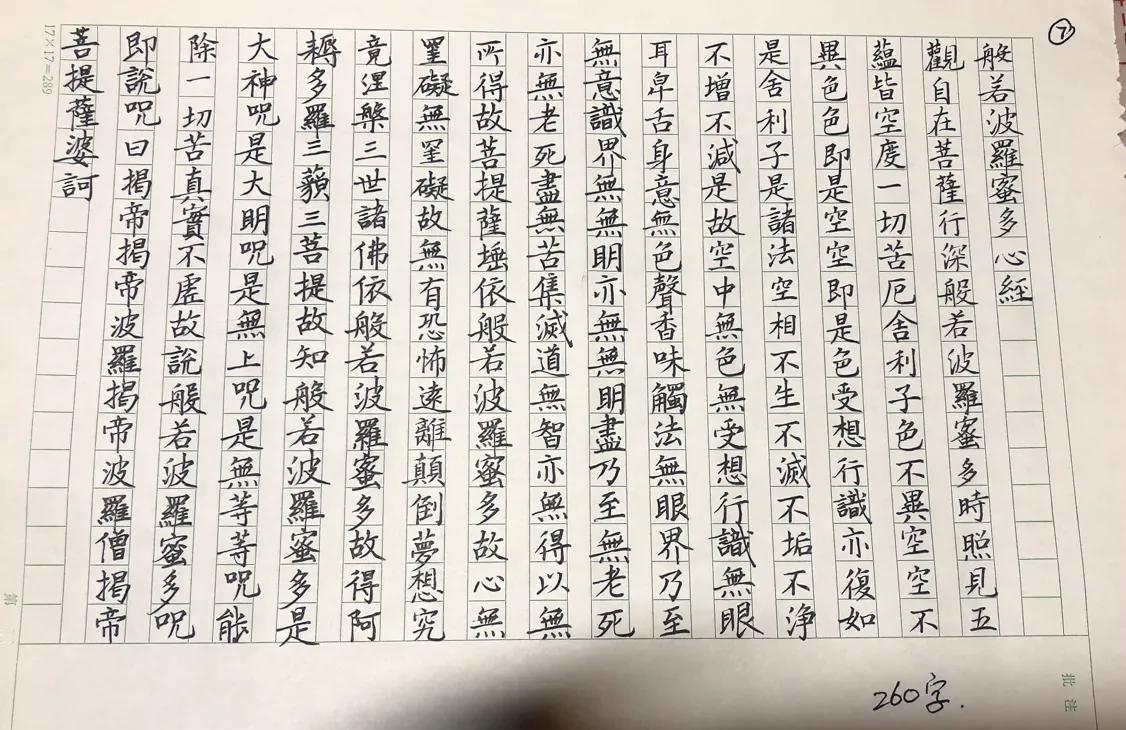 ⑦
般若波羅蜜多心經
觀自在菩薩行深般若波羅蜜多時照見五
蘊皆空度一切苦厄舍利子色不異空空不
異色色即是空空即是色受想行識亦復如
是舍利子是諸法空相不生不滅不垢不淨
不增不減是故空中無色無受想行識無眼
耳鼻舌身意無色聲香味觸法無眼界乃至
無意識界無無明亦無無明盡乃至無老死
亦無老死盡無苦集滅道無智亦無得以無
所得故菩提薩埵依般若波羅蜜多故心無
罣礙無罣礙故無有恐怖遠離顛倒夢想究
竟涅槃三世諸佛依般若波羅蜜多故得阿
耨多羅三藐三菩提故知般若波羅蜜多是
大神咒是大明咒是無上咒是無等等咒能
除一切苦真實不虛故說般若波羅蜜多咒
即說咒曰揭帝揭帝波羅揭帝波羅僧揭帝
菩提薩婆訶
17×17=289
第
批注
260字.